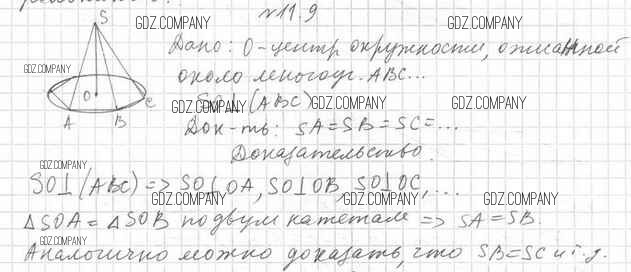 №11.9
S
Дано: O-центр окружности, описанной
около многоуг. ABC...
SO⊥(ABC)
O
A B C
Док-ть: SA=SB=SC=...
Доказательство.
SO⊥(ABC) => SO⊥OA, SO⊥OB, SO⊥OC, ...
△SOA=△SOB по двум катетам => SA=SB.
Аналогично можно доказать, что SB=SC и т.д.
GDZ.COMPANY GDZ.COMPANY
GDZ.COMPANY
GDZ.COMPANY GDZ.COMPANY GDZ.COMPANY
GDZ.COMPANY
GDZ.COMPANY GDZ.COMPANY GDZ.COMPANY
GDZ.COMPANY